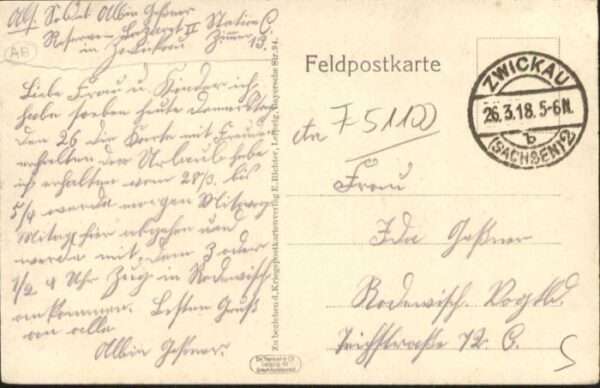 Abs. Soldat Albin Geßner
Reserve Lazarett II Station C.
in Zwickau Zimmer 13.
AB
Liebe Frau u. Kinder ich
habe soeben heute Donnerstag
den 26 die Karte mit Freuden
erhalten den Urlaub habe
ich erhalten vom 28/3. bis
5/4 werde morgen
Mittag hier abgehen und
werde mit dem 3 oder
1/2 4 Uhr Zug in Rodewisch
ankommen. Besten Gruß
an alle
Albin Geßner.
Zu beziehen d. Kriegspostkartenverlag E. Richter, Leipzig, Bayersche Str. 94.
Feldpostkarte
ZWICKAU
26.3.18. 5-6N.
b
(SACHSEN) 2
An
F 51100
Frau
Ida Geßner
Rodewisch. Vogtld.
Teichstraße 12 C.